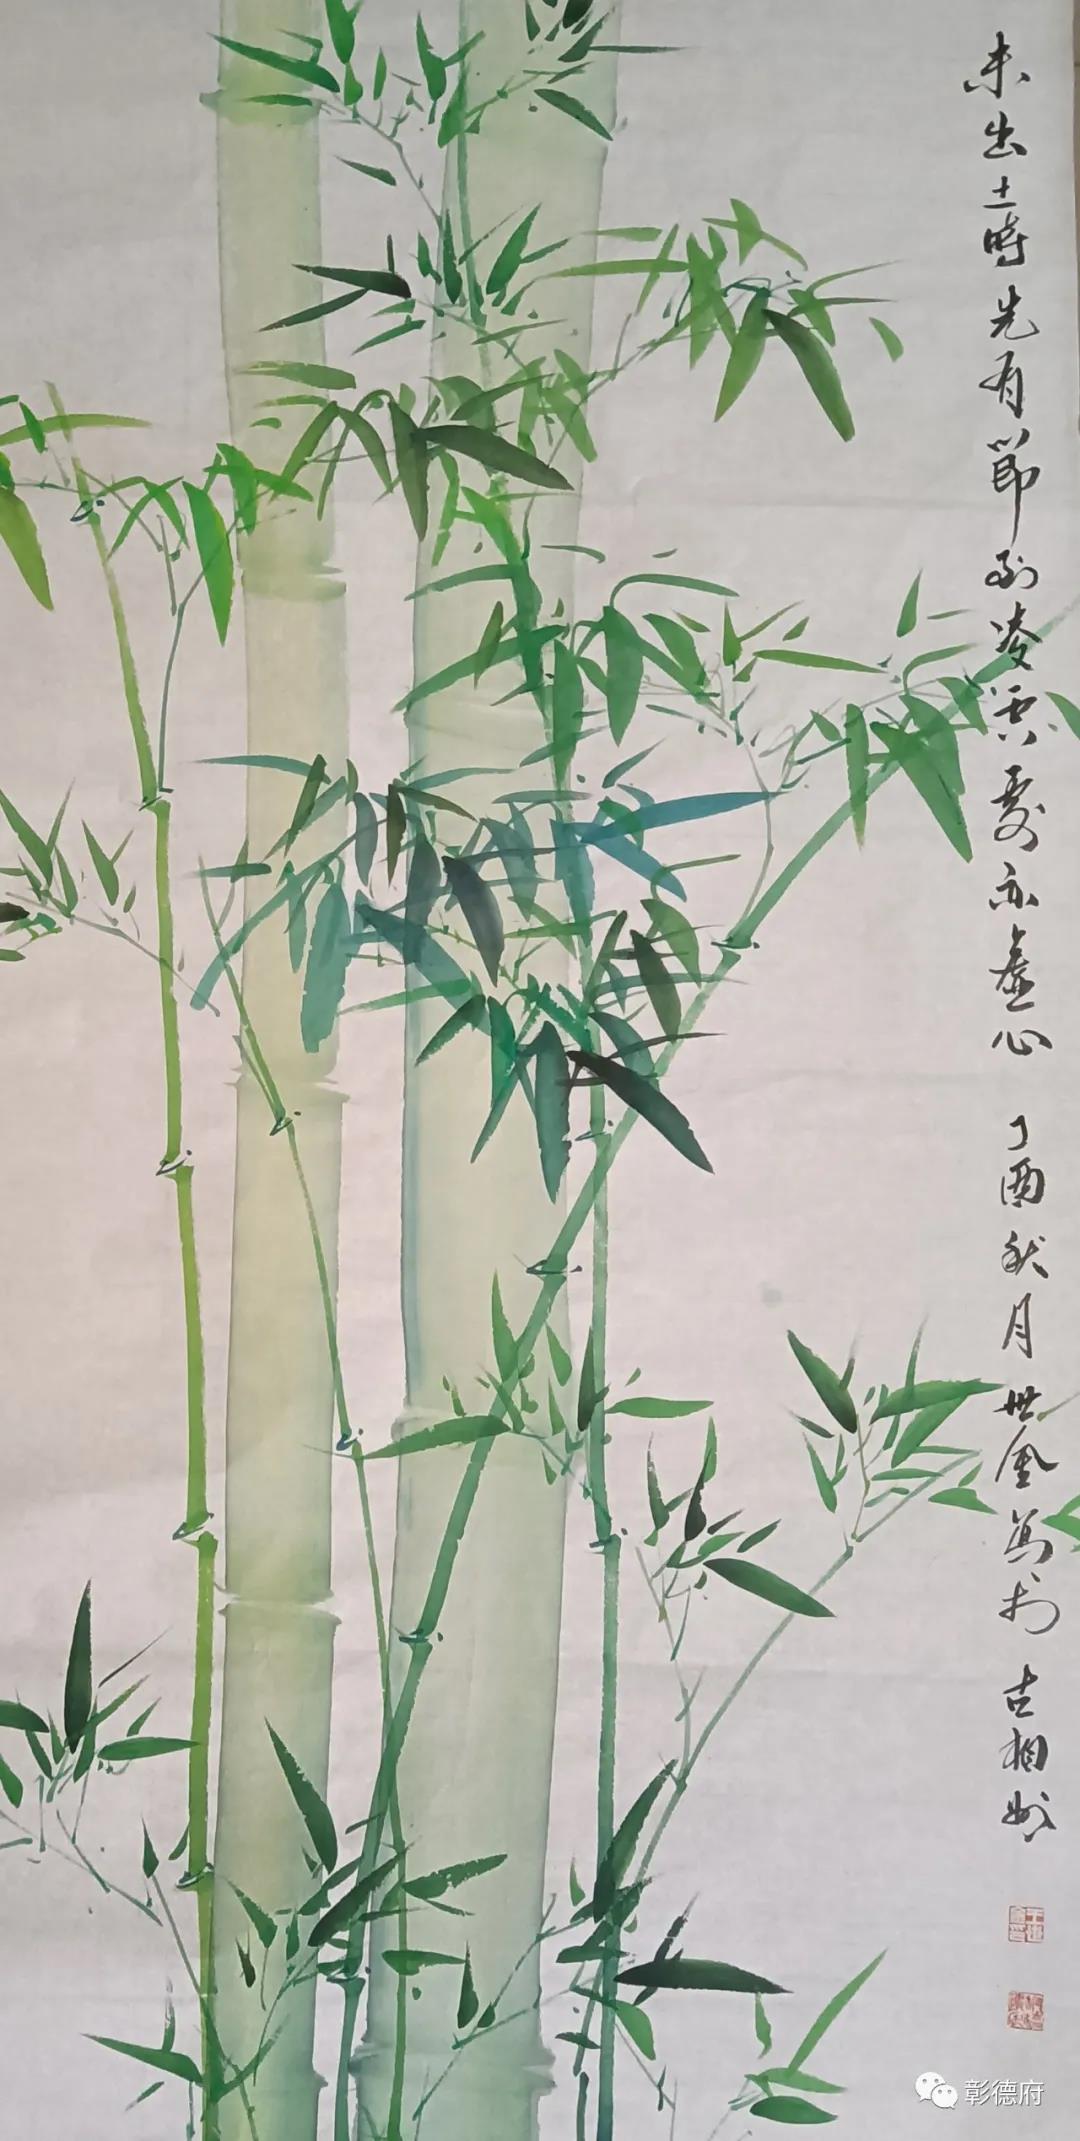 未出土時先有節到凌雲處亦虛心 丁酉秋月世金写於 古相州
彰德府